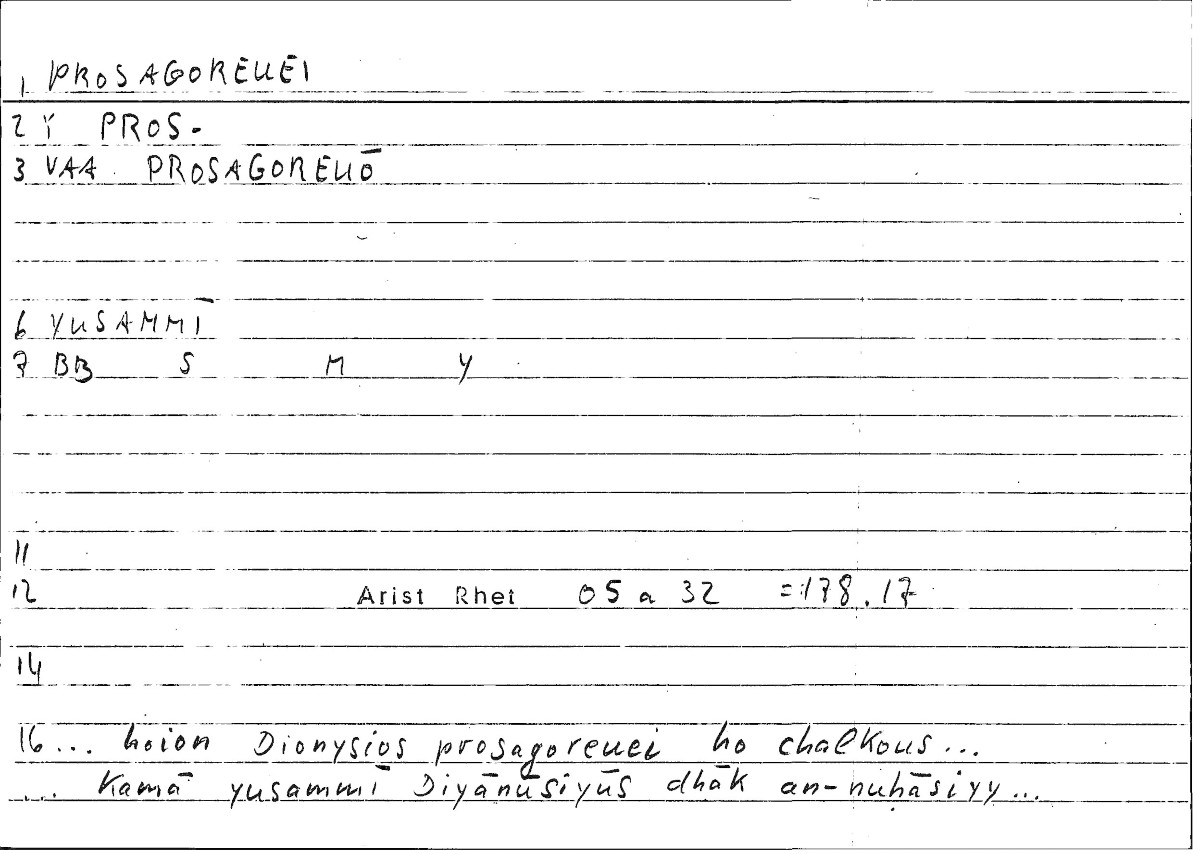 1 PROSAGOREUEI
2 Y PROS-
3 VAA PROSAGOREUŌ
6 YUSAMMĪ
7 BB S M Y
11
12 Arist Rhet 05 a 32 =178.17
14
16 ... hoion Dionysios prosagoreuei ho chalkous...
... kamā yusammī Diyānūsiyūs dhāk an-nuḥāsiyy...